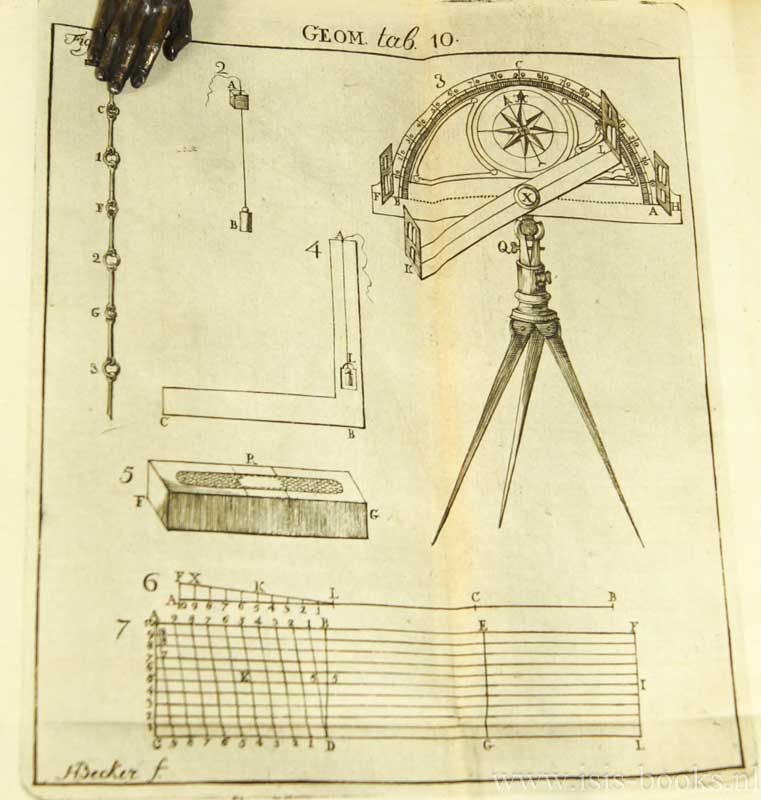 GEOM. tab. 10.
Fig
C
1
F
2
G
3
2
A
B
3
C
F
B
L
X
A
H
K
Q
4
A
L
C
B
5
P
F
G
6
F X
K
L
C
B
A
10 9 8 7 6 5 4 3 2 1
7
A
9 8 7 6 5 4 3 2 1
B
E
F
K
5
5
I
C
9 8 7 6 5 4 3 2 1
D
G
L
Becker f.
www.isis-books.nl